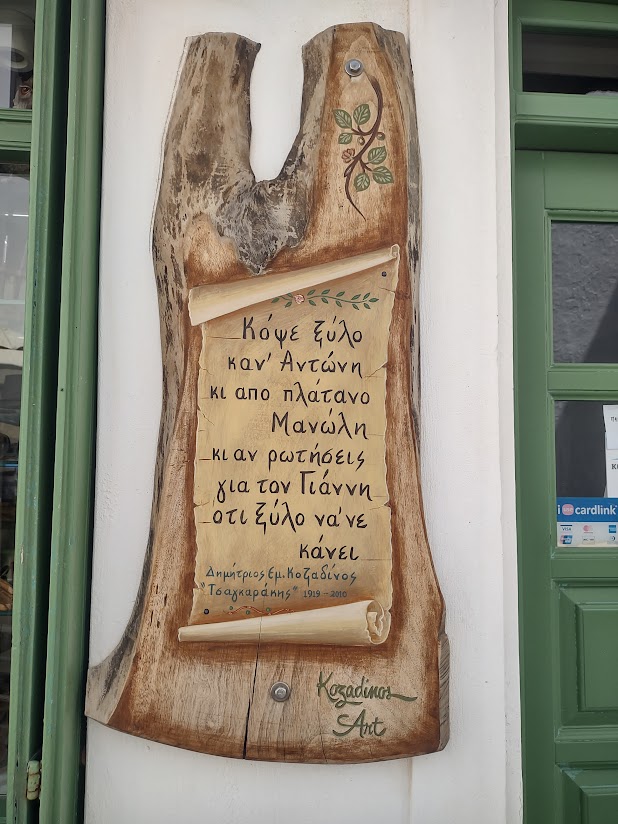 Κόψε ξύλο
καν' Αντώνη
κι απο πλάτανο
Μανώλη
κι αν ρωτήσεις
για τον Γιάννη
οτι ξύλο να'νε
κάνει
Δημήτριος Εμ. Κοζαδίνος
"Τσαγκαράκης" 1919 - 2010
Kozadinos
Art
cardlink
VISA